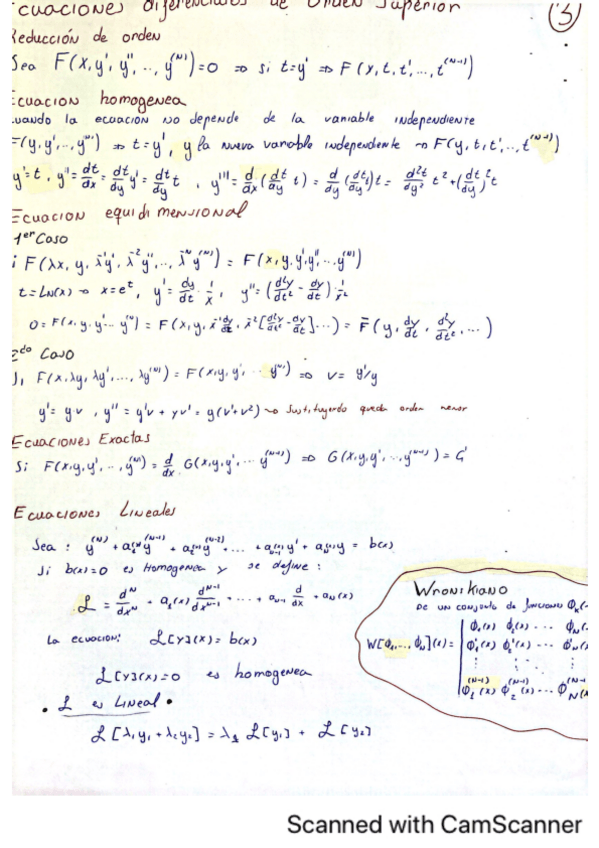 Ecuaciones diferenciales de Orden Superior
(3)
Reducción de orden
Sea F(x,y',y'',..,y^(N))=0 ⇒ si t=y' ⇒ F(x,t,t',..,t^(N-1))
Ecuacion homogenea
cuando la ecuación no depende de la variable independiente
F(y,y',..,y^(N)) ⇒ t=y', y la nueva variable independiente → F(y,t,t',..,t^(N-1))
y'=t, y''=dt/dx=dt/dy y'=dt/dy t, y'''=d/dx(dt/dy t)=d/dy(dt/dy t)t=d²t/dy² t²+(dt/dy)² t
Ecuacion equidimensional
1er Caso
i F(λx, y, λ⁻¹y', λ⁻²y'',.., λ⁻ᴺy^(N)) = F(x,y,y',y'',..,y^(N))
t=Ln(x) → x=e^t, y'=dy/dt · 1/x, y''=(d²y/dt² - dy/dt) · 1/x²
0=F(x,y,y'...y^(N)) = F(x,y,x⁻¹dy/dt, x⁻²[d²y/dt² - dy/dt]...) = F̄(y, dy/dt, d²y/dt²,...)
2do Caso
Si F(x,λy,λy',...,λy^(N)) = F(x,y,y',...y^(N)) ⇒ v= y'/y
y'=yv, y''=y'v+yv'=y(v'+v²) → Sustituyendo queda orden menor
Ecuaciones Exactas
Si F(x,y,y',..,y^(N)) = d/dx G(x,y,y',...y^(N-1)) ⇒ G(x,y,y',...,y^(N-1)) = G'
Ecuaciones Lineales
Sea: y^(N) + a₁(x)y^(N-1) + a₂(x)y^(N-2) + ... + a_N-1(x)y' + a_N(x)y = b(x)
Si b(x)=0 es Homogenea y se define:
ℒ = d^N/dx^N + a₁(x) d^N-1/dx^N-1 + ... + a_N-1 d/dx + a_N(x)
la ecuacion: ℒ[y](x) = b(x)
ℒ[y](x)=0 es homogenea
• ℒ es Lineal •
ℒ[λ₁y₁+λ₂y₂] = λ₁ ℒ[y₁] + ℒ[y₂]
Wronikiano
De un conjunto de funciones ϕ_k(
W[ϕ₁,..., ϕ_N](x) = | ϕ₁(x) ϕ₂(x) ... ϕ_N(
ϕ'₁(x) ϕ'₂(x) ... ϕ'_N(
ϕ₁^(N-1)(x) ϕ₂^(N-1)(x) ... ϕ_N^(N-1
Scanned with CamScanner